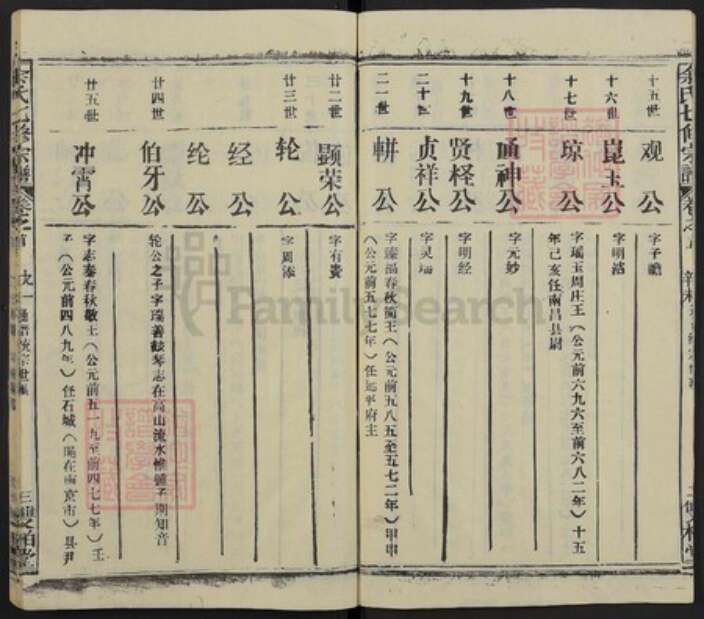 余氏七修宗谱
十五世
观公
字子瞻
十六世
崑玉公
字明浩
十七世
琼公
字瑶玉周庄王（公元前六九六至前六八二年）十五
年己亥任南昌县尉
十八世
通神公
字元妙
十九世
贤柽公
字明经
二十世
贞祥公
字灵瑞
二一世
輧公
字臻福春秋简王（公元前五八五至五七二年）甲申
（公元前五七七年）任远平府主
廿二世
显荣公
字有袭
廿三世
轮公
字周添
经公
纶公
廿四世
伯牙公
轮公之子字瑞善鼓琴志在高山流水惟锺子期知音
廿五世
冲霄公
字志泰春秋敬王（公元前五一九至前四七七年）壬
子（公元前四八九年）任石城（现在南京市）县尹
余氏七修宗谱
FamilySearch